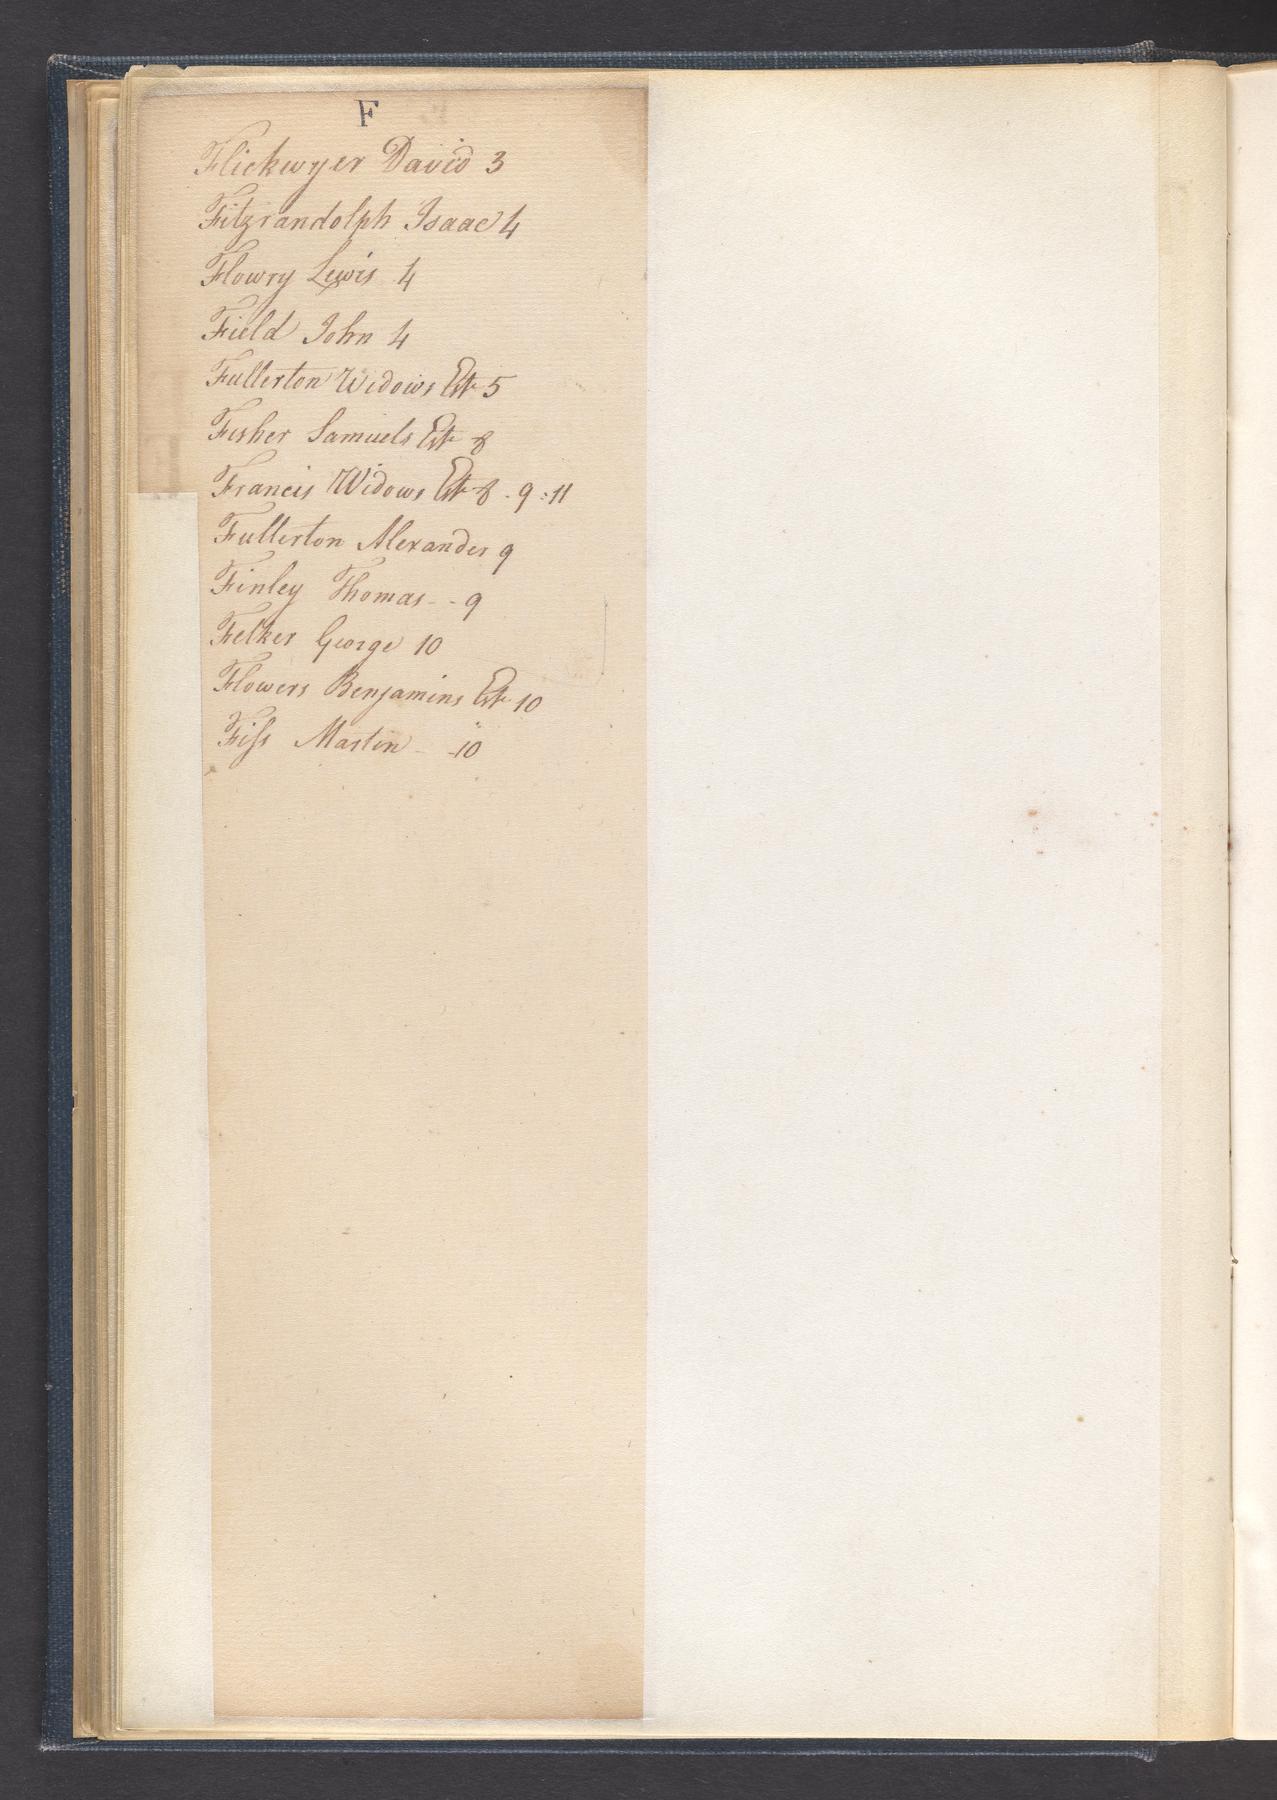 F
Flickwyer David 3
Fitzrandolph Isaac 4
Flowry Lewis 4
Field John 4
Fullerton Widows Est 5
Fisher Samuels Est 8
Francis Widows Est 8 . 9 : 11
Fullerton Alexander 9
Finley Thomas - - 9
Felker George 10
Flowers Benjamins Est 10
Fiſs Martin - - 10